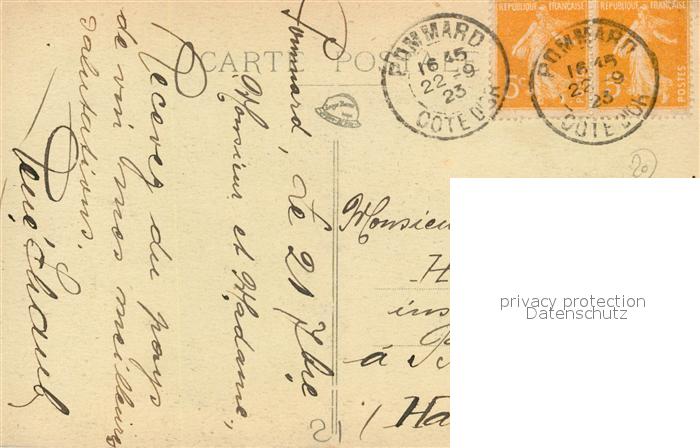 CARTE POSTALE
Pommard, le 21 7bre
Monsieur et Madame,
Recevez du pays
de vin mes meilleures
salutations.
René
POMMARD
16 45
22-9
23
COTE D'OR
POMMARD
16 45
22-9
23
COTE D'OR
REPUBLIQUE FRANÇAISE
5c
POSTES
REPUBLIQUE FRANÇAISE
5c
POSTES
20
Monsieur
H
ins
à B
(Ha
privacy protection
Datenschutz